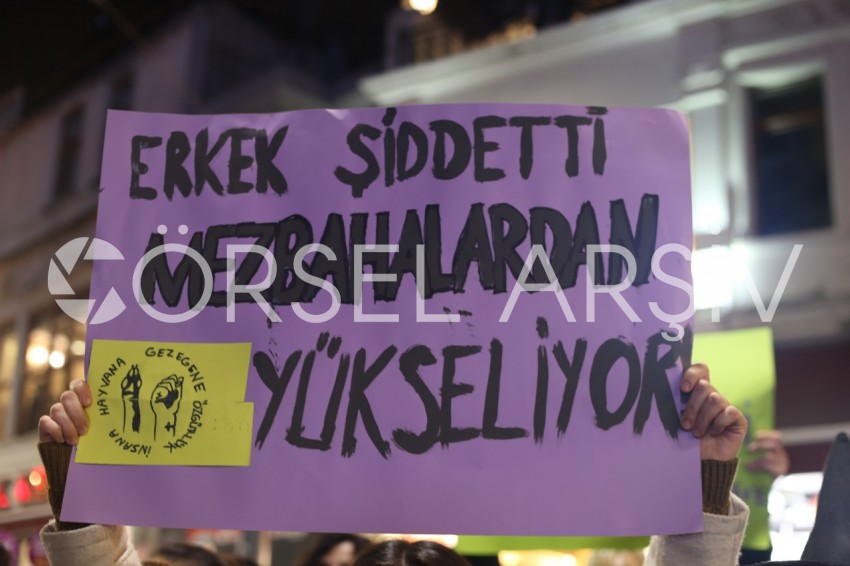 ERKEK ŞİDDETTİ
MEZBAHALARDAN
YÜKSELİYOR
İNSANA HAYVANA GEZEGENE ÖZGÜRLÜK
GÖRSEL ARŞİV